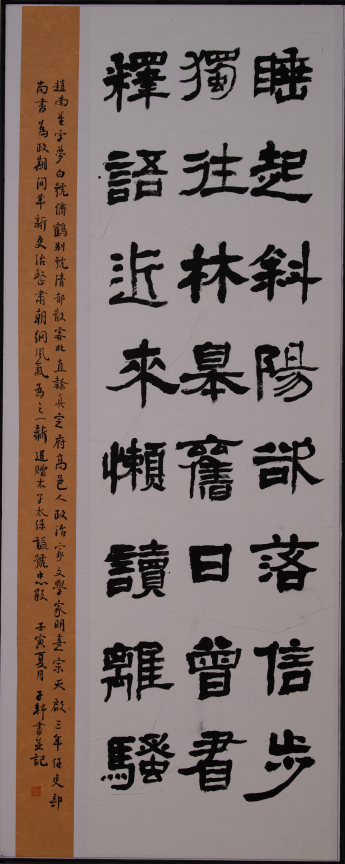 睡起斜陽欲落信步
獨往林皋舊日曾看
釋語近來懶讀離騷
趙南星字夢白號儕鶴別號清都散客北直隸真定府高邑人政治家文學家明熹宗天啟三年任吏部
尚書為政期間革新吏治整肅朝綱風氣為之一新追贈太子太保諡號忠毅 壬寅夏月子軒書並記